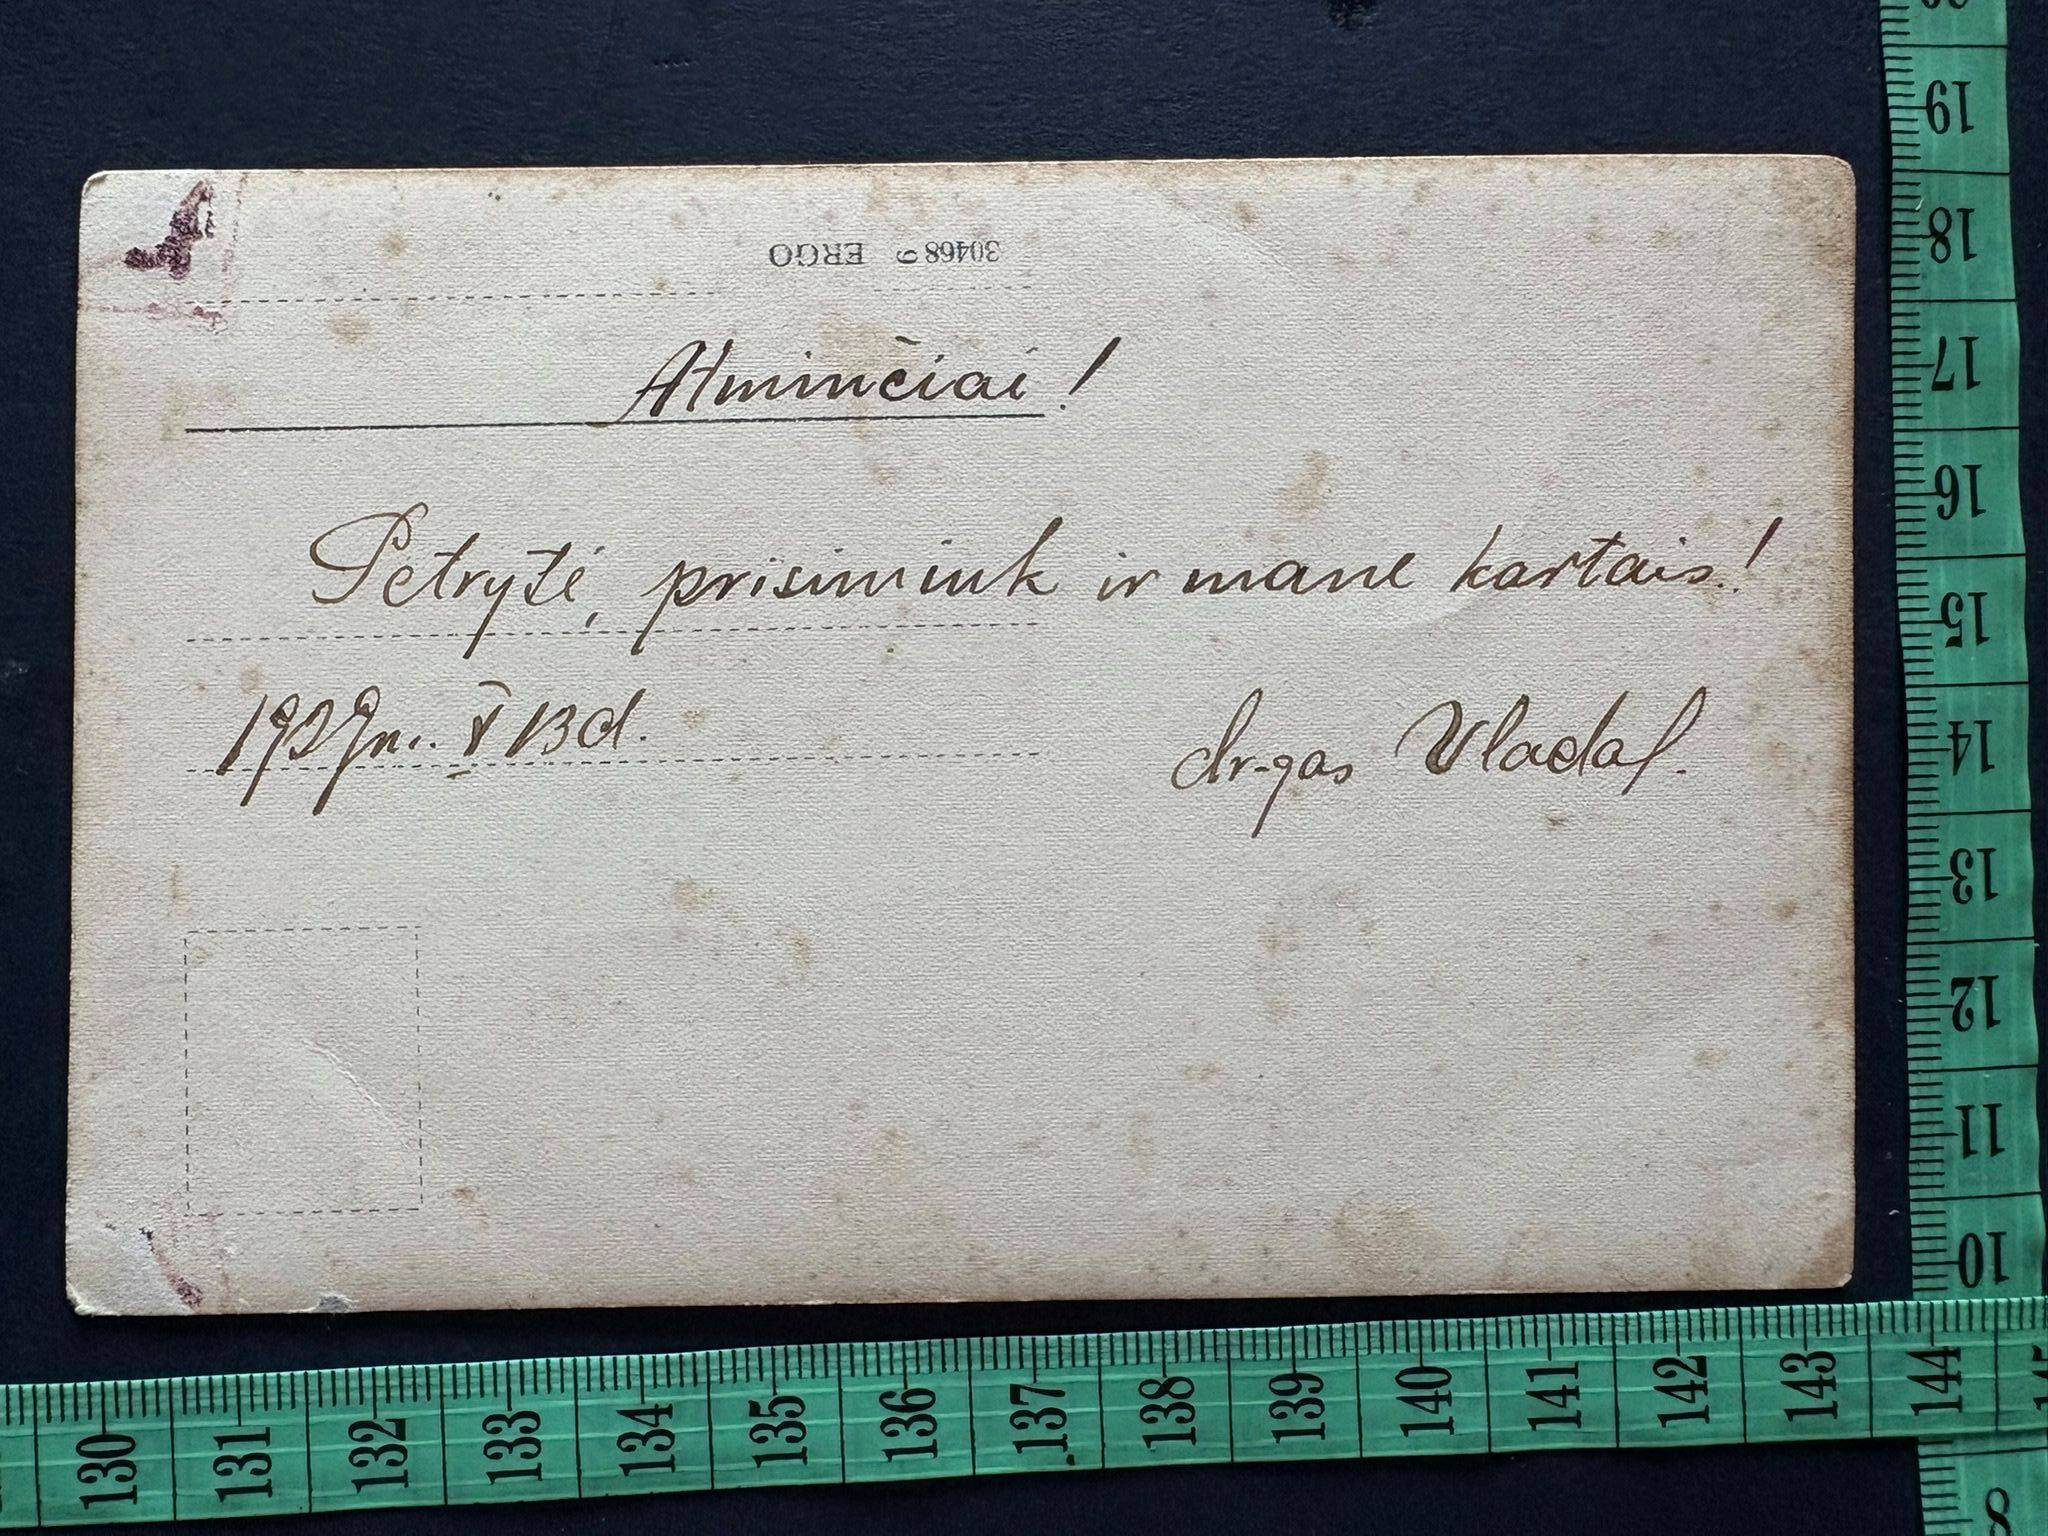 30468 9 ERGO
Atminčiai!
Petryte, prisimink ir mane kartais!
1929 m. V 13 d.
dr-gas Vladas.
19
18
17
16
15
14
13
12
11
10
8
130 131 132 133 134 135 136 137 138 139 140 141 142 143 144